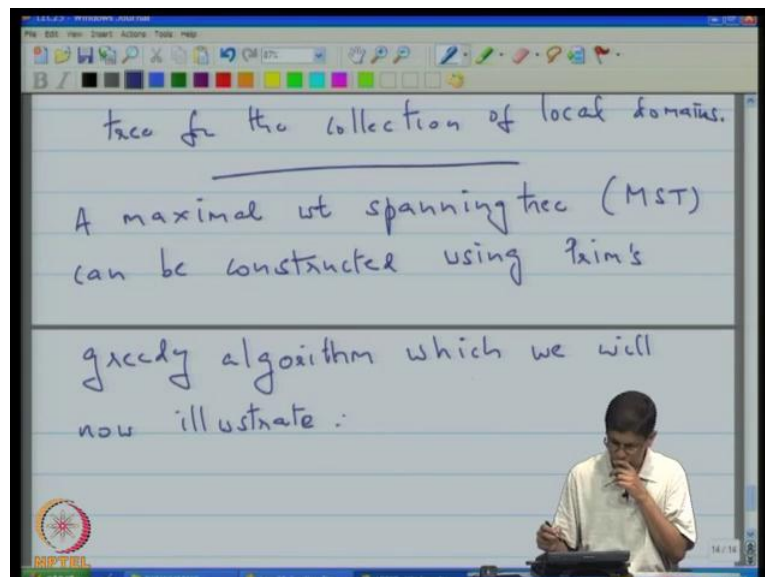 LEC25 - Windows Journal
File Edit View Insert Actions Tools Help
87%
B I
tree for the collection of local domains.
A maximal wt spanning tree (MST)
can be constructed using Prim's
greedy algorithm which we will
now illustrate :
NPTEL
14 / 14